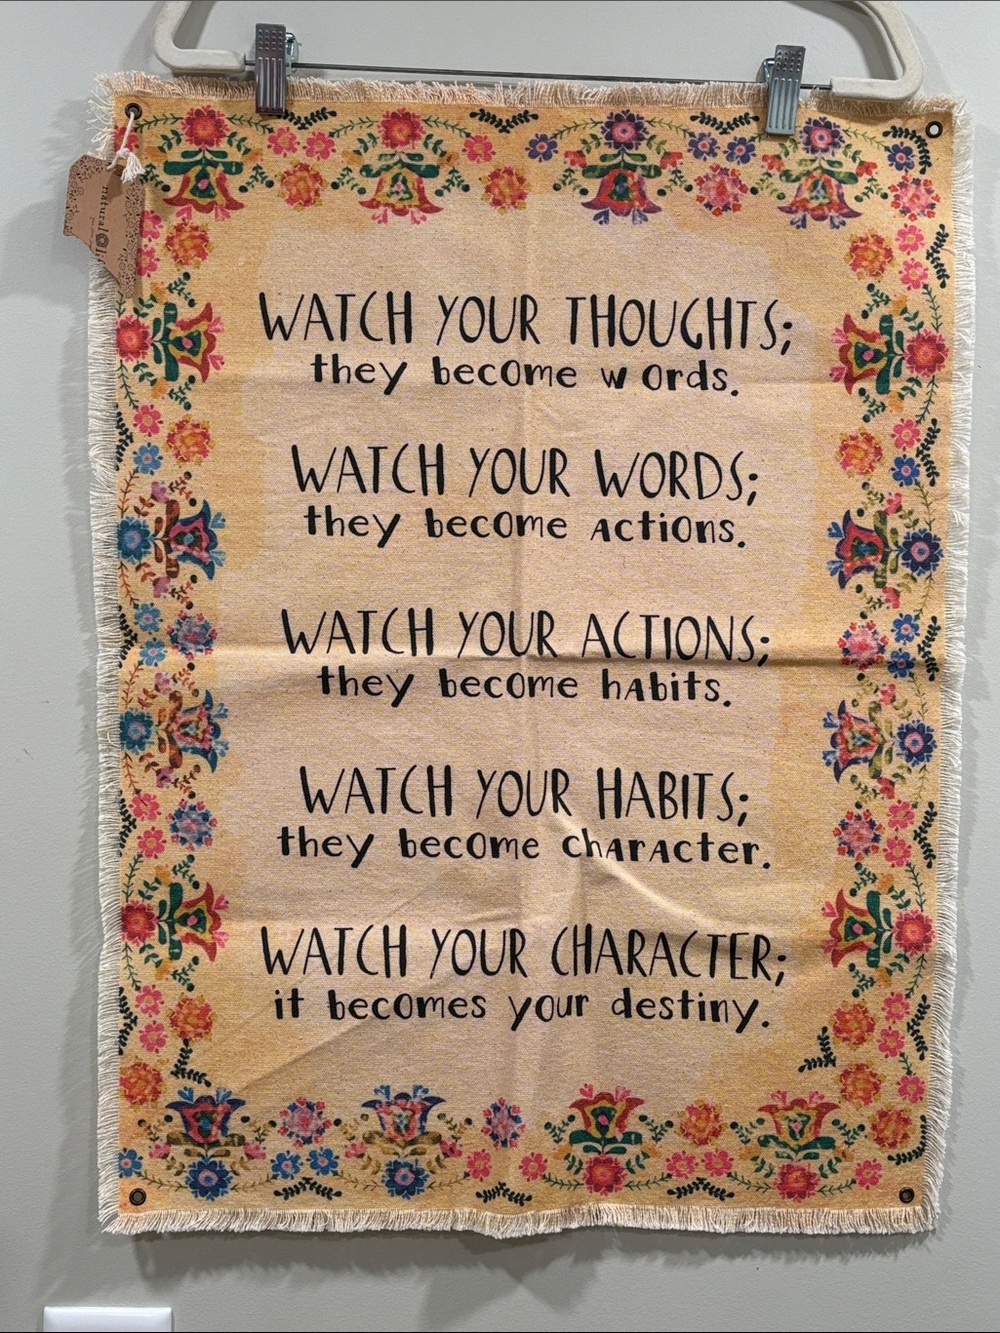 natural
WATCH YOUR THOUGHTS;
they become words.
WATCH YOUR WORDS;
they become actions.
WATCH YOUR ACTIONS;
they become habits.
WATCH YOUR HABITS;
they become character.
WATCH YOUR CHARACTER;
it becomes your destiny.